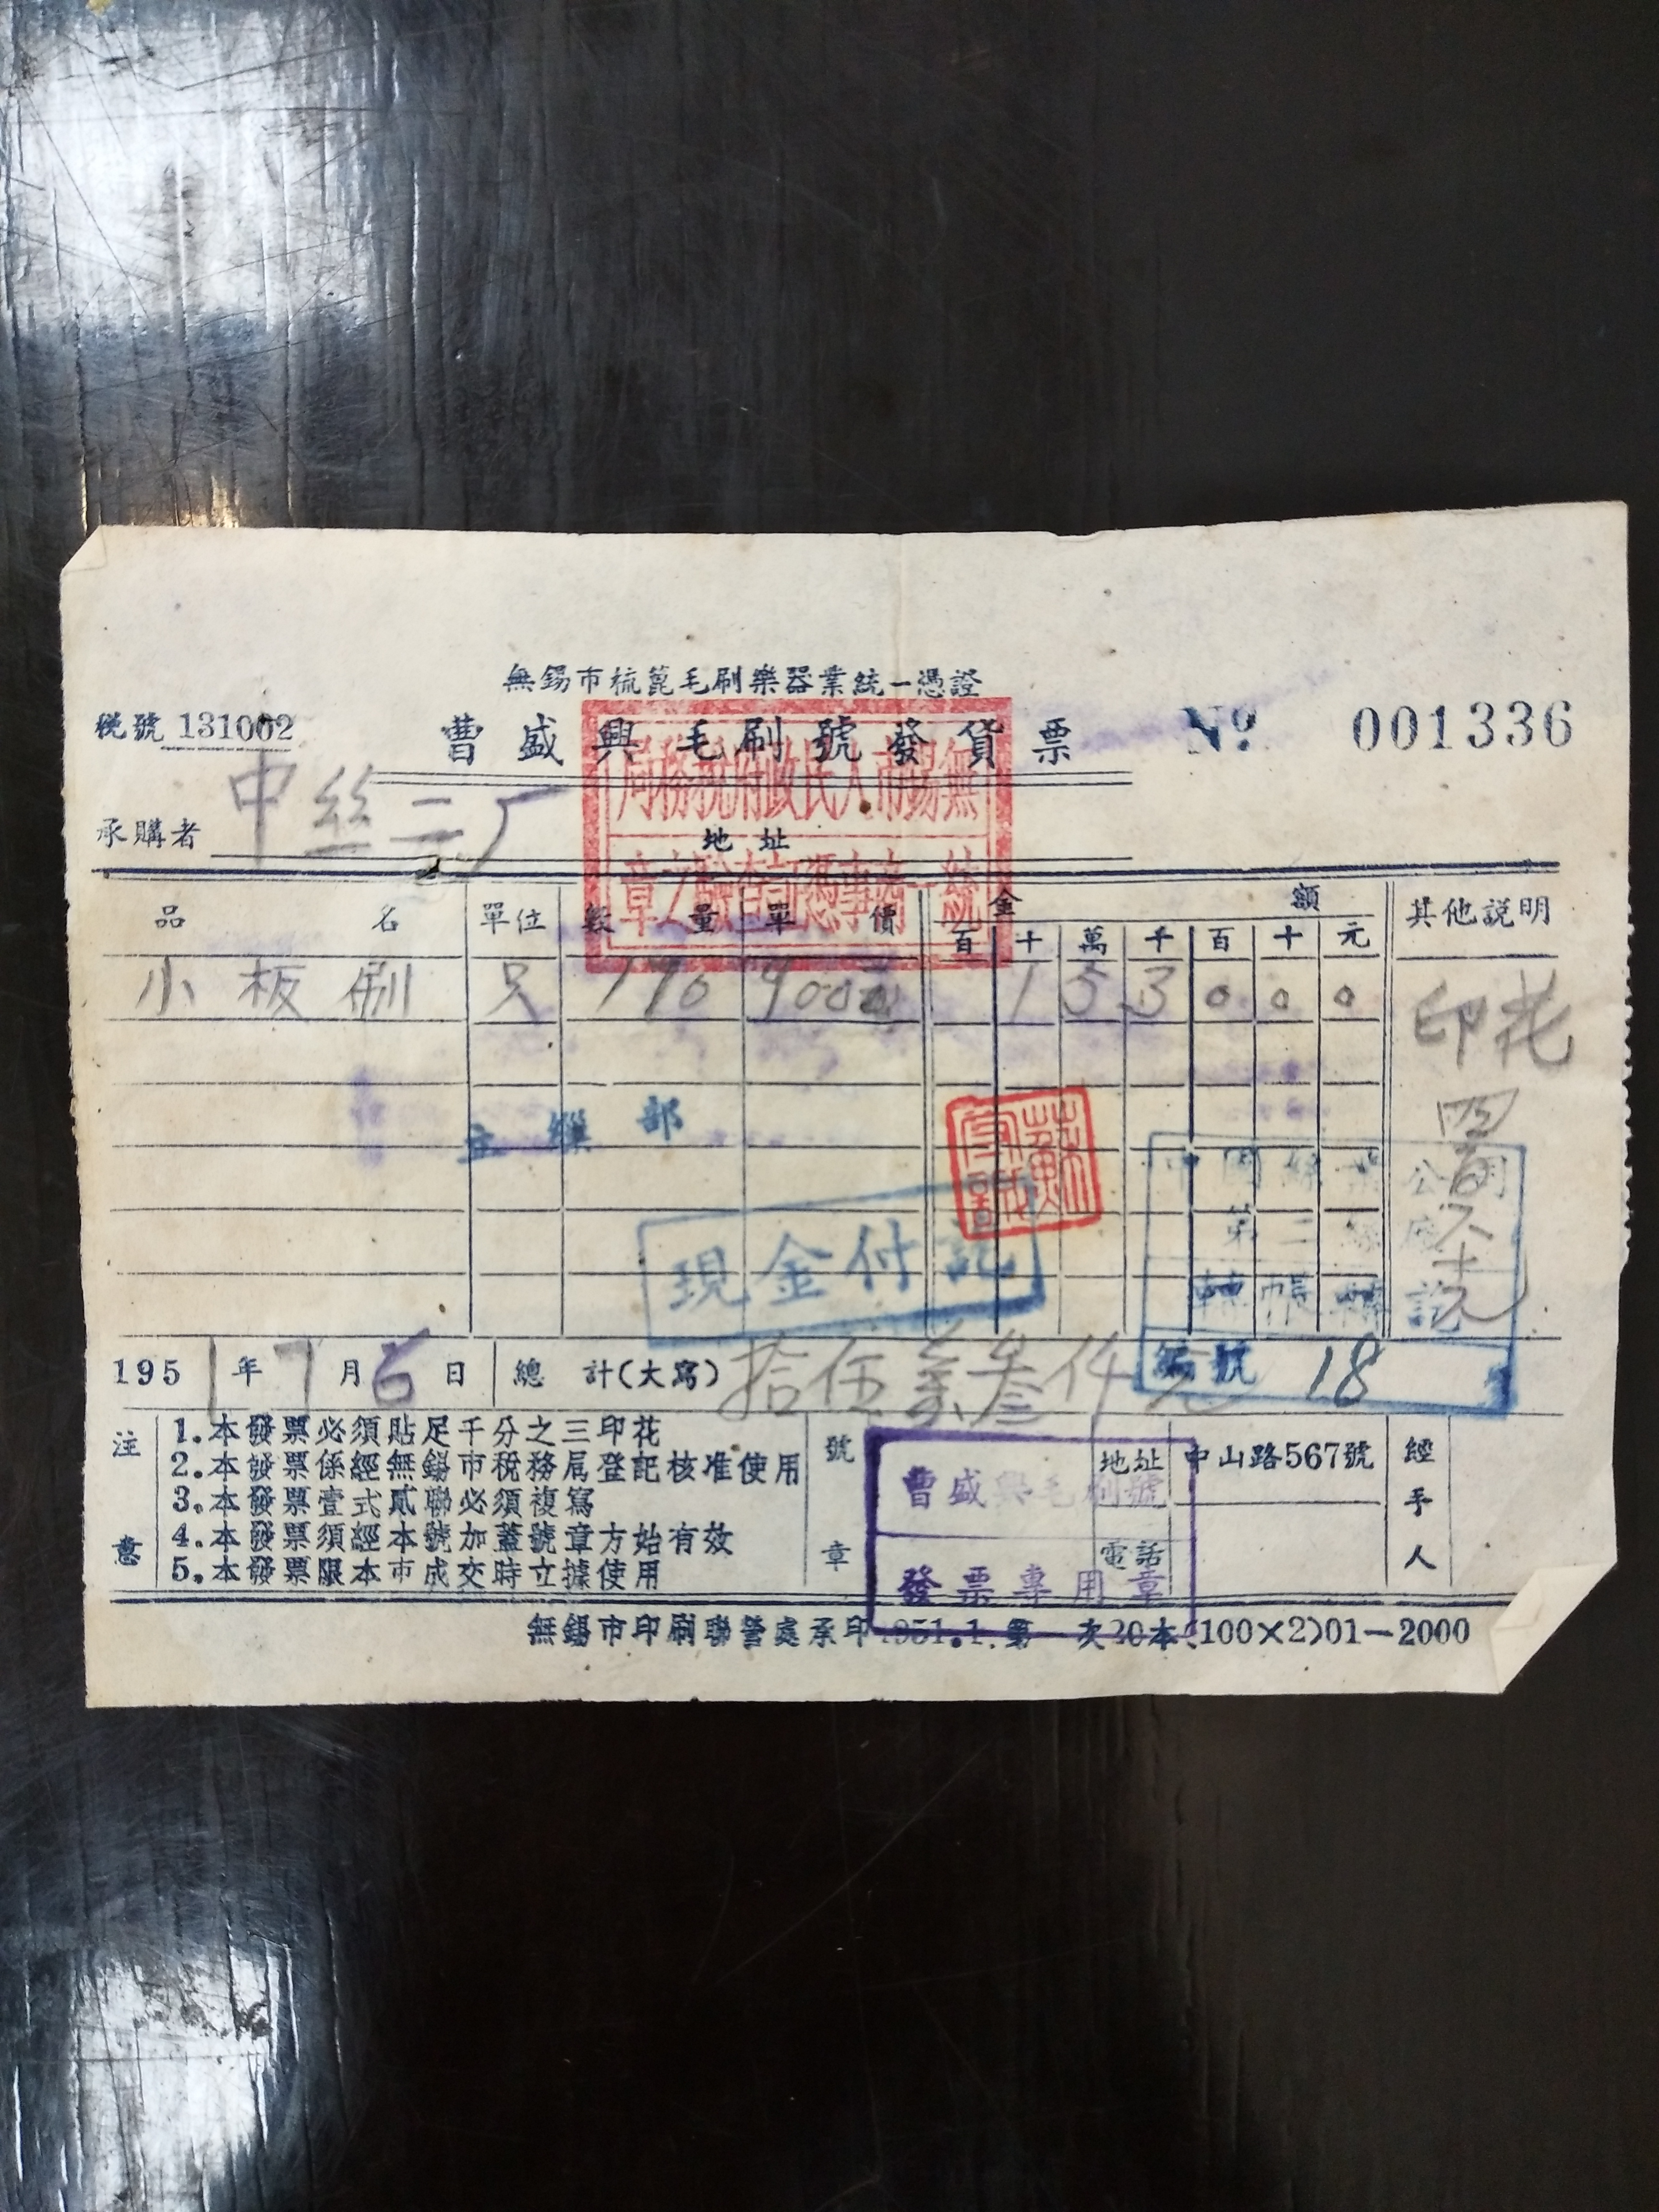 無錫市梳篦毛刷樂器業統一憑證
稅號 131002
曹盛興毛刷號發貨票
№ 001336
無錫市人民政府稅務局
統一商事憑証查驗之章
承購者 中丝二厂
地址
品名 單位 數量 單價 金額 其他説明
百 十 萬 千 百 十 元
小板刷 只 170 900元 1 5 3 0 0 0
印花
四百六十元
現金付訖
第二
轉帳訖
編號 18
1951年7月6日 總計(大寫) 拾伍萬叁仟元
注意
1.本發票必須貼足千分之三印花
2.本發票係經無錫市稅務局登記核准使用
3.本發票壹式貳聯必須複寫
4.本發票須經本號加蓋號章方始有效
5.本發票限本市成交時立據使用
號章
曹盛興毛刷號
發票專用章
地址 中山路567號
電話
經手人
無錫市印刷聯營處承印 1951.1.第一次20本(100×2)01—2000